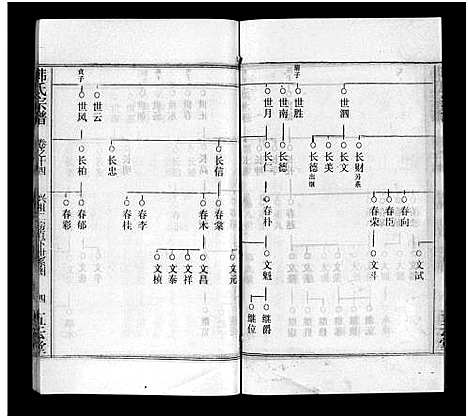 世泗
长财 另系
长文
长美
长德 出嗣
春向
春臣
春荣
文试
文斗
世胜
世南
世月
长德
长仁
春朴
文魁
继爵
继位
世云
贞子
世风
长信
长忠
长柏
春棠
春木
春李
春桂
春郁
春彩
文元
文昌
文祥
文泰
文桢
韩氏宗谱
四